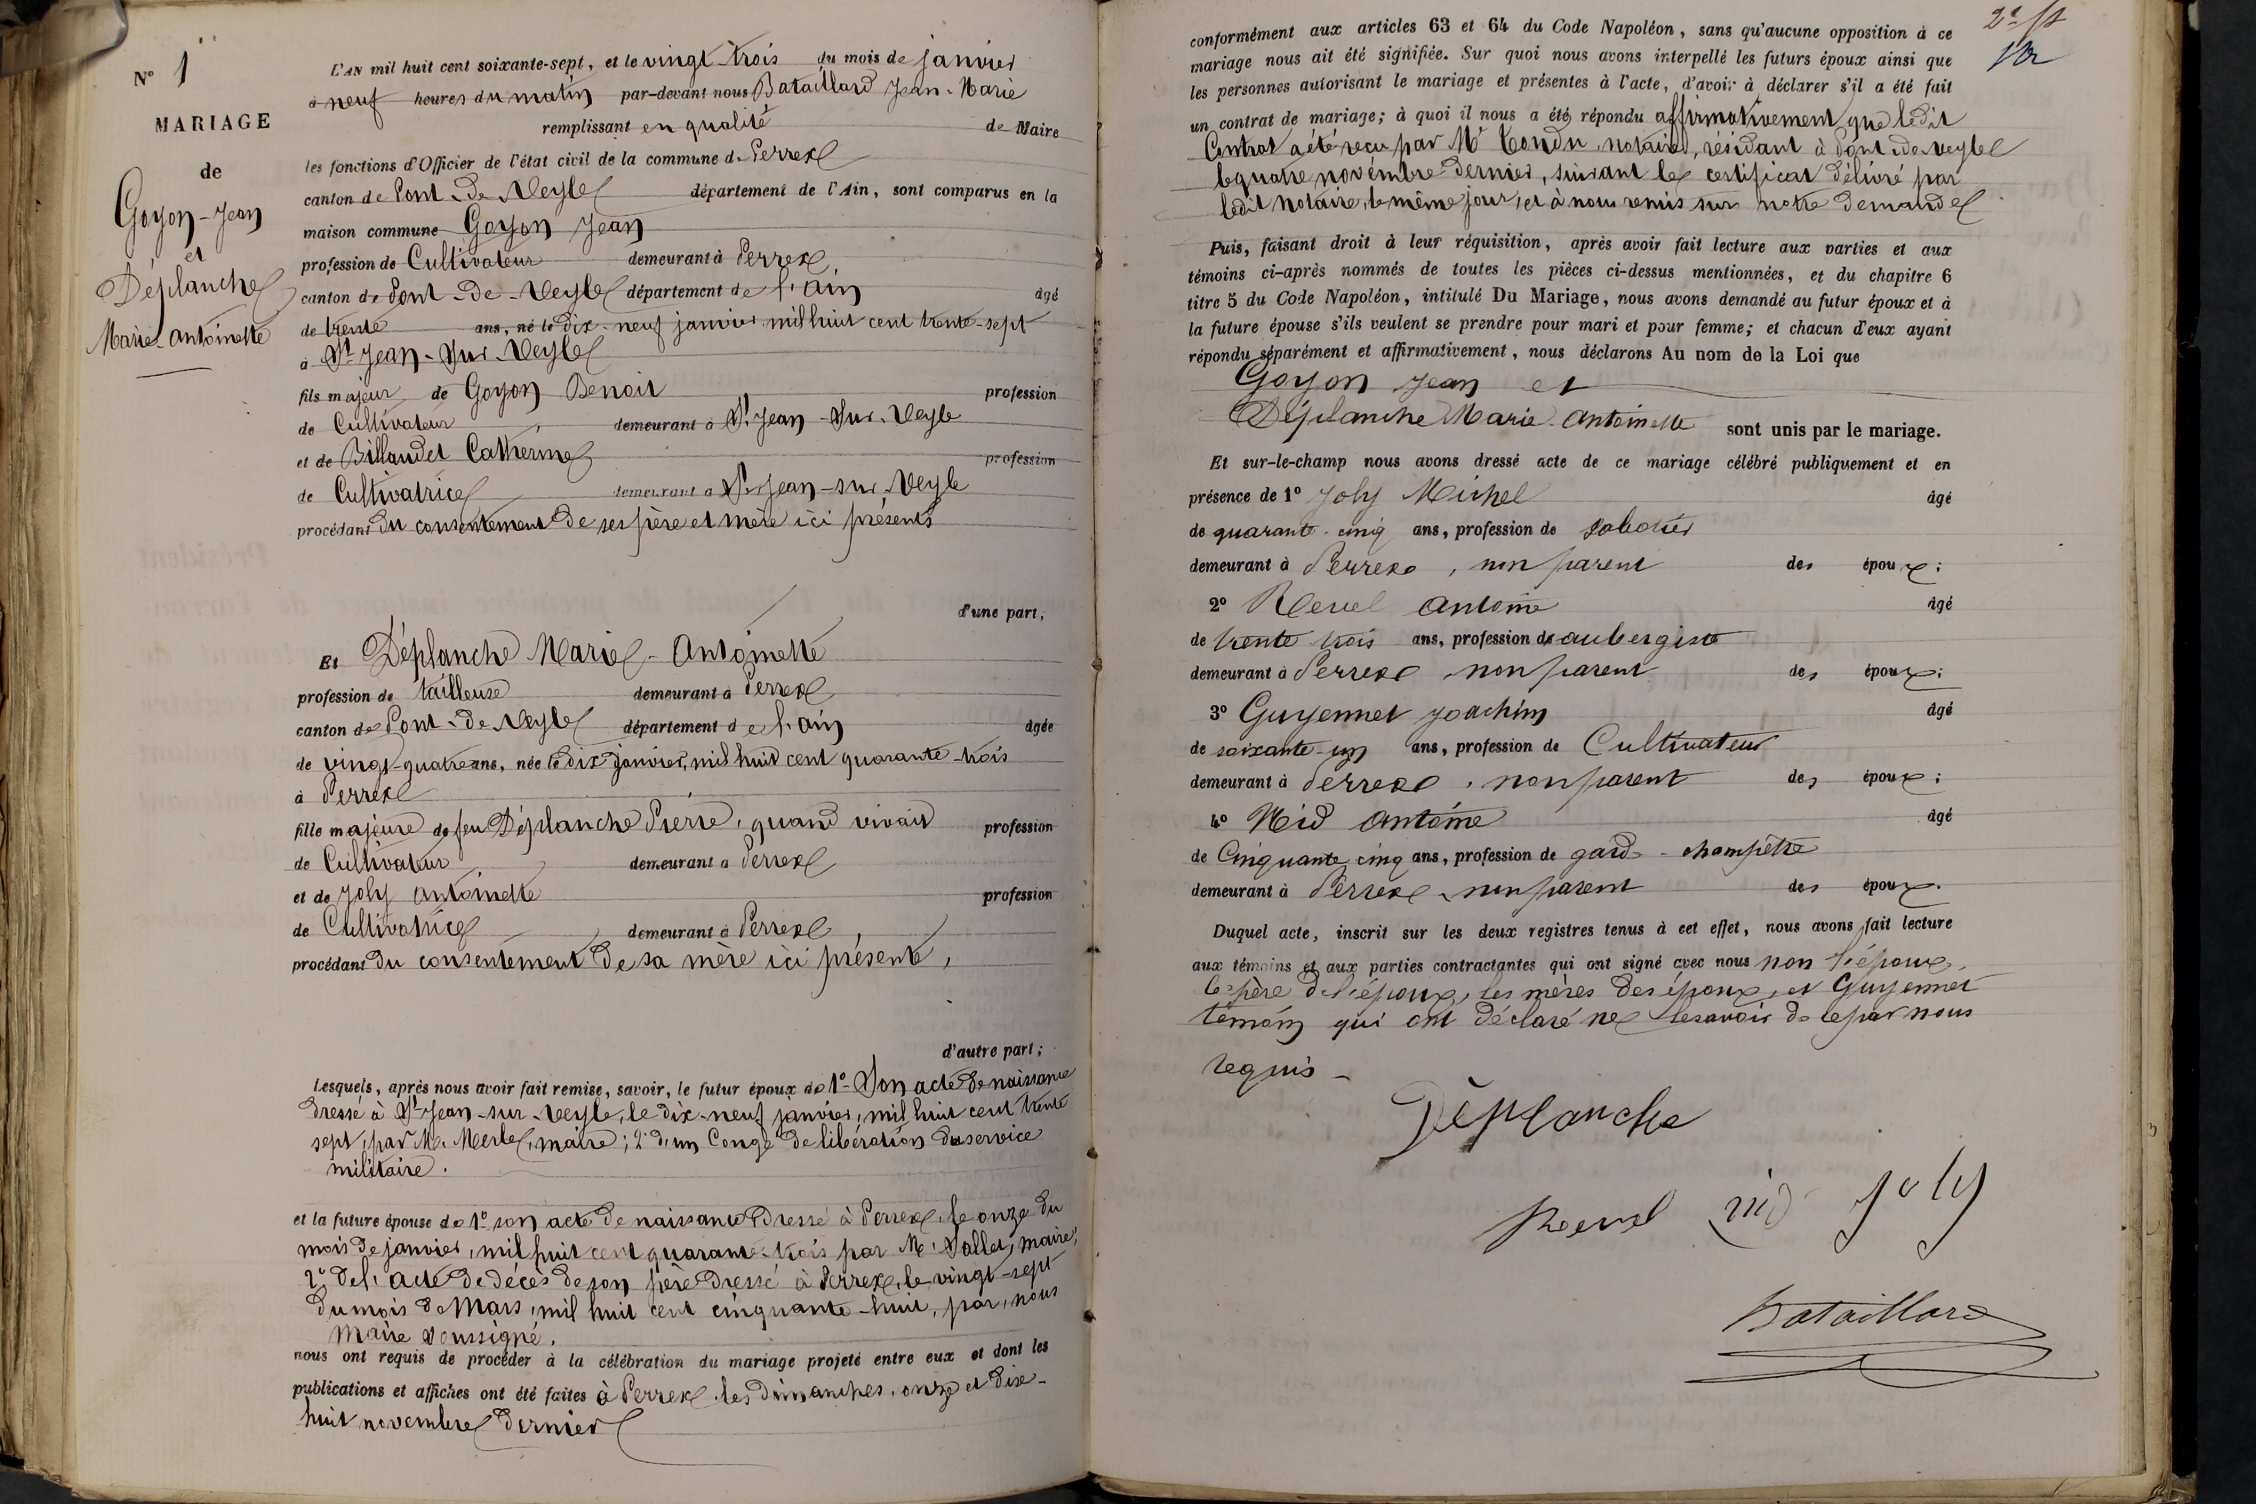 N° 1
MARIAGE
de
Goyon-Jean
et
Déplanche
Marie-Antoinette
L'AN mil huit cent soixante-sept, et le vingt-trois du mois de janvier
à neuf heures du matin par-devant nous Bataillard Jean-Marie
remplissant en qualité de Maire
les fonctions d'Officier de l'état civil de la commune de Perrex
canton de Pont-de-Veyle département de l'Ain, sont comparus en la
maison commune Goyon Jean
profession de Cultivateur demeurant à Perrex
canton de Pont-de-Veyle département de l'ain âgé
de trente ans, né le dix-neuf janvier mil huit cent trente-sept
à St Jean-Sur-Veyle
fils majeur de Goyon Benoit profession
de Cultivateur demeurant à St Jean-Sur-Veyle
et de Billoudet Catherine profession
de Cultivatrice demeurant à St Jean-sur-Veyle
procédant du consentement de ses père et mère ici présents
d'une part,
Et Déplanche Marie-Antoinette
profession de tailleuse demeurant à Perrex
canton de Pont-de-Veyle département de l'ain âgée
de vingt-quatre ans, née le dix janvier, mil huit cent quarante-trois
à Perrex
fille majeure de feu Déplanche Pierre, quand vivait profession
de Cultivateur demeurant à Perrex
et de Joly antoinette profession
de Cultivatrice demeurant à Perrex,
procédant du consentement de sa mère ici présente,
d'autre part;
Lesquels, après nous avoir fait remise, savoir, le futur époux de 1° Son acte de naissance
dressé à St Jean-sur-Veyle, le dix-neuf janvier, mil huit cent trente
sept, par Mr Merle, maire; 2° d'un Congé de libération du service
militaire.
et la future épouse de 1° son acte de naissance dressé à Perrex, le onze du
mois de janvier, mil huit cent quarante-trois par Mr Vallet, maire;
2° de l'acte de décès de son père dressé à Perrex, le vingt-sept
du mois de Mars, mil huit cent cinquante-huit, par, nous
Maire soussigné.
nous ont requis de procéder à la célébration du mariage projeté entre eux et dont les
publications et affiches ont été faites à Perrex les dimanches, onze et dix-
huit novembre dernier
conformément aux articles 63 et 64 du Code Napoléon, sans qu'aucune opposition à ce
mariage nous ait été signifiée. Sur quoi nous avons interpellé les futurs époux ainsi que
les personnes autorisant le mariage et présentes à l'acte, d'avoir à déclarer s'il a été fait
un contrat de mariage; à quoi il nous a été répondu affirmativement que ledit
Contrat a été reçu par Mr Condu, notaire, résidant à Pont-de-Veyle
le quatre novembre dernier, suivant le certificat délivré par
ledit Notaire, le même jour, et à nous remis sur notre demande
Puis, faisant droit à leur réquisition, après avoir fait lecture aux parties et aux
témoins ci-après nommés de toutes les pièces ci-dessus mentionnées, et du chapitre 6
titre 5 du Code Napoléon, intitulé Du Mariage, nous avons demandé au futur époux et à
la future épouse s'ils veulent se prendre pour mari et pour femme; et chacun d'eux ayant
répondu séparément et affirmativement, nous déclarons Au nom de la Loi que
Goyon Jean et
Déplanche Marie-Antoinette sont unis par le mariage.
Et sur-le-champ nous avons dressé acte de ce mariage célébré publiquement et en
présence de 1° Joly Michel âgé
de quarante-cinq ans, profession de sabotier
demeurant à Perrex, non parent des époux;
2° Revel Antoine âgé
de trente trois ans, profession de aubergiste
demeurant à Perrex non parent des époux;
3° Guyennet Joachim âgé
de soixante-un ans, profession de Cultivateur
demeurant à Perrex, non parent des époux;
4° Nid Antoine âgé
de Cinquante cinq ans, profession de garde-champêtre
demeurant à Perrex, non parent des époux.
Duquel acte, inscrit sur les deux registres tenus à cet effet, nous avons fait lecture
aux témoins et aux parties contractantes qui ont signé avec nous non l'époux,
le père de l'époux, les mères des époux, et Guyennet
témoin qui ont déclaré ne le savoir de ce par nous
requis.
Déplanche
Revel nid Joly
Bataillard